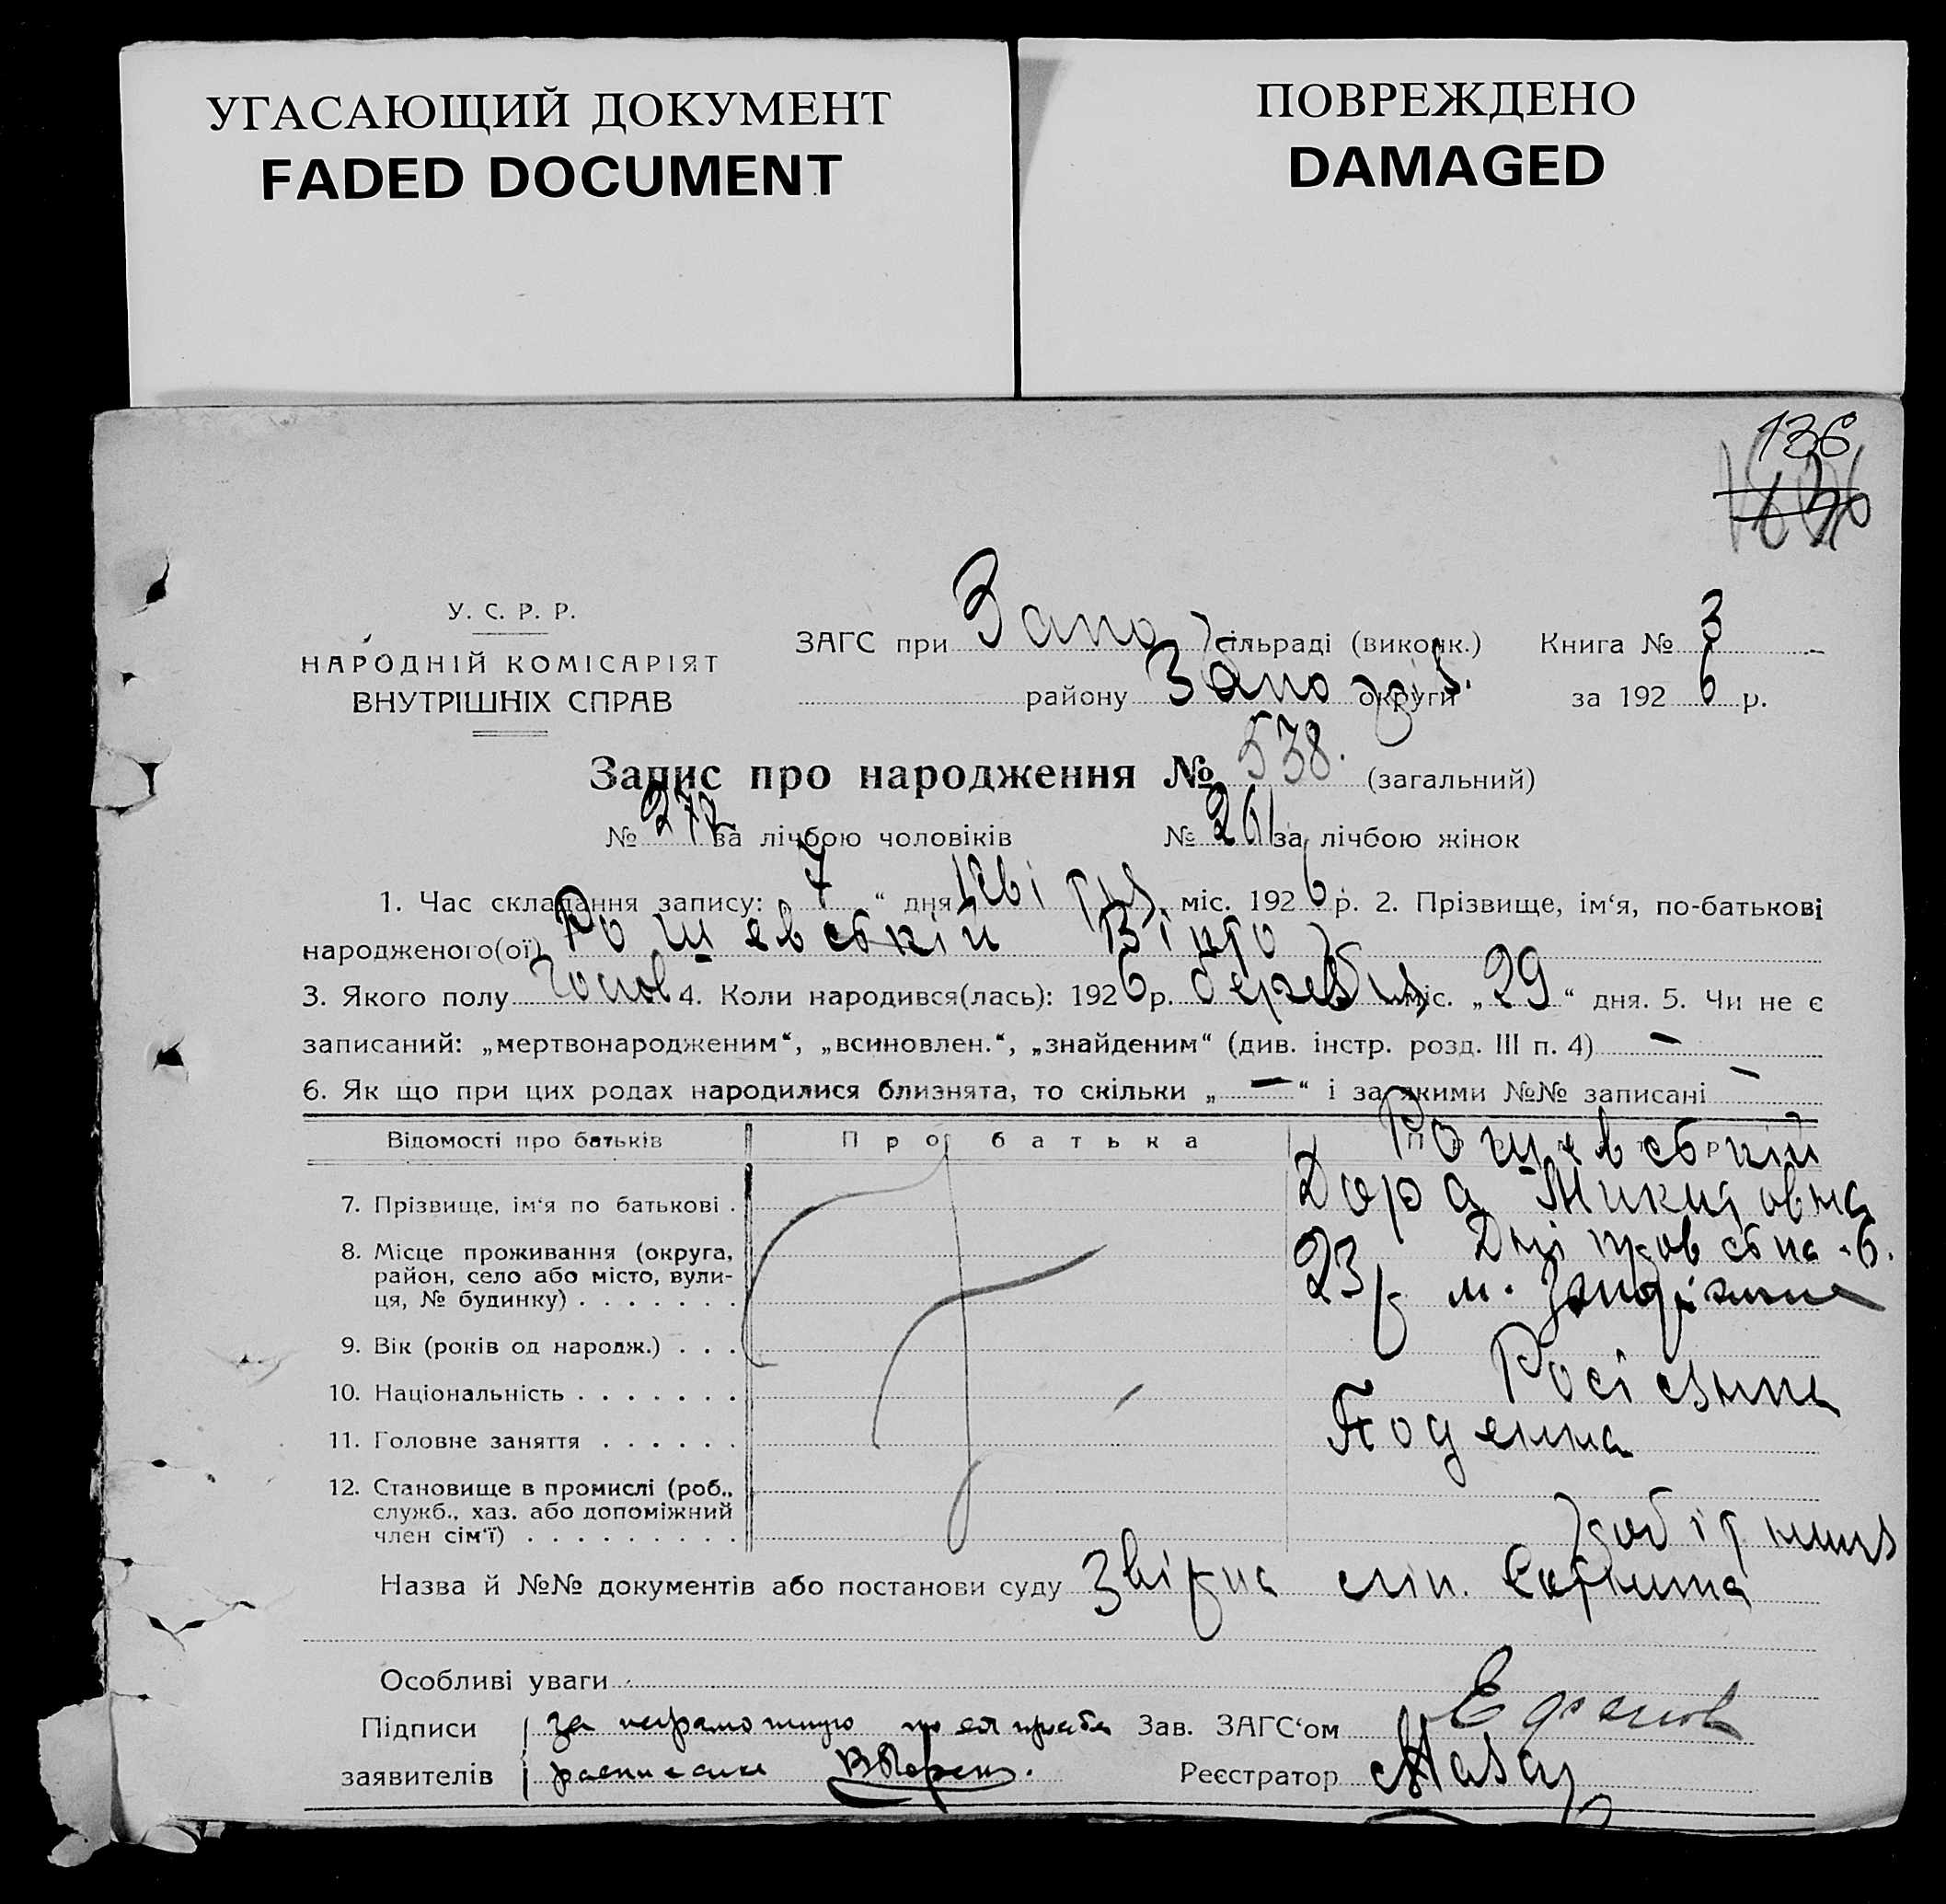 УГАСАЮЩИЙ ДОКУМЕНТ
FADED DOCUMENT
ПОВРЕЖДЕНО
DAMAGED
136
У. С. Р. Р.
НАРОДНІЙ КОМІСАРІЯТ
ВНУТРІШНІХ СПРАВ
ЗАГС при Запо сільраді (виконк.) Книга № 3
району Запорізь. округи за 1926 р.
Запис про народження № 538. (загальний)
№ 277 за лічбою чоловіків № 261 за лічбою жінок
1. Час складання запису: 7 “ дня міс. 1926 р. 2. Прізвище, ім‘я, по-батькові
народженого(ої) Рошевській Віктор
3. Якого полу Чолов 4. Коли народився(лась): 1926 р. березня міс. „ 29 “ дня. 5. Чи не є
записаний: „мертвонародженим“, „всиновлен.“, „знайденим“ (див. інстр. розд. III п. 4) —
6. Як що при цих родах народилися близнята, то скільки „ — “ і за якими №№ записані —
Відомості про батьків Про батька Рошевській
7. Прізвище, ім‘я по батькові . Дора Микитовна
8. Місце проживання (округа,
район, село або місто, вули-
ця, № будинку) . . . . . . . 23 м.
9. Вік (років од народж.) . . .
10. Національність . . . . . . . Росіянка
11. Головне заняття . . . . . . Поденна
12. Становище в промислі (роб.,
служб., хаз. або допоміжний
член сім‘ї) . . . . . . . . . робітниця
Назва й №№ документів або постанови суду
Особливі уваги
Підписи за неграмотную по ея просьбе Зав. ЗАГС‘ом Ефанов
заявителів росписался Реєстратор